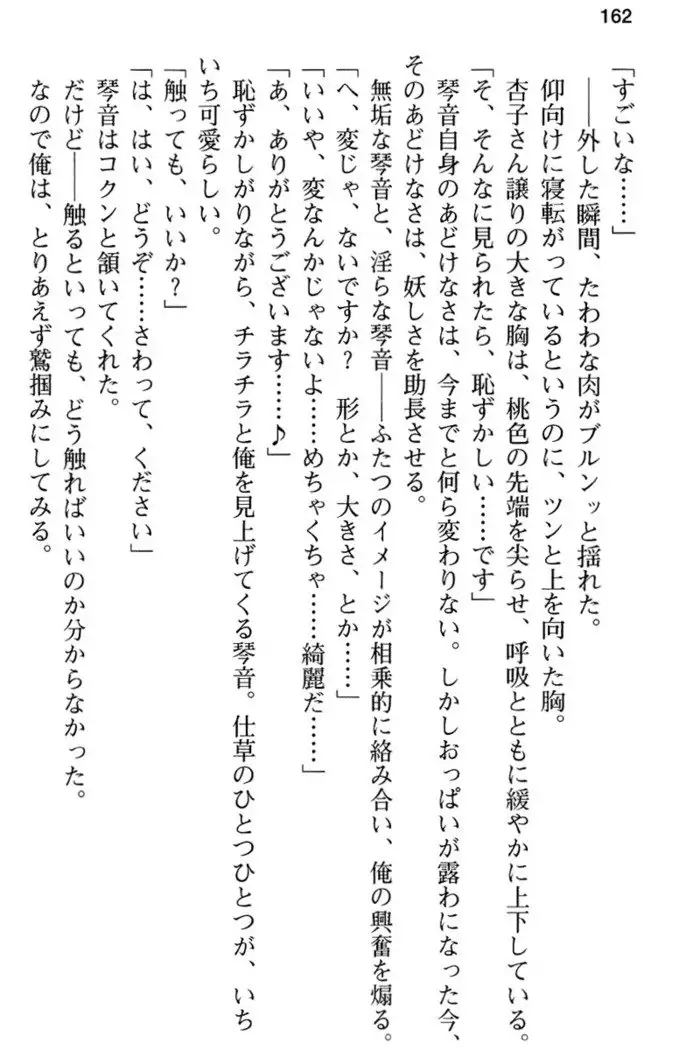 162
「すごいな……」
――外した瞬間、たわわな肉がブルンッと揺れた。
仰向けに寝転がっているというのに、ツンと上を向いた胸。
杏子さん譲りの大きな胸は、桃色の先端を尖らせ、呼吸とともに緩やかに上下している。
「そ、そんなに見られたら、恥ずかしい……です」
琴音自身のあどけなさは、今までと何ら変わりない。しかしおっぱいが露わになった今、
そのあどけなさは、妖しさを助長させる。
無垢な琴音と、淫らな琴音――ふたつのイメージが相乗的に絡み合い、俺の興奮を煽る。
「へ、変じゃ、ないですか？　形とか、大きさ、とか……」
「いいや、変なんかじゃないよ……めちゃくちゃ……綺麗だ……」
「あ、ありがとうございます……♪」
恥ずかしがりながら、チラチラと俺を見上げてくる琴音。仕草のひとつひとつが、いち
いち可愛らしい。
「触っても、いいか？」
「は、はい、どうぞ……さわって、ください」
琴音はコクンと頷いてくれた。
だけど――触るといっても、どう触ればいいのか分からなかった。
なので俺は、とりあえず鷲掴みにしてみる。